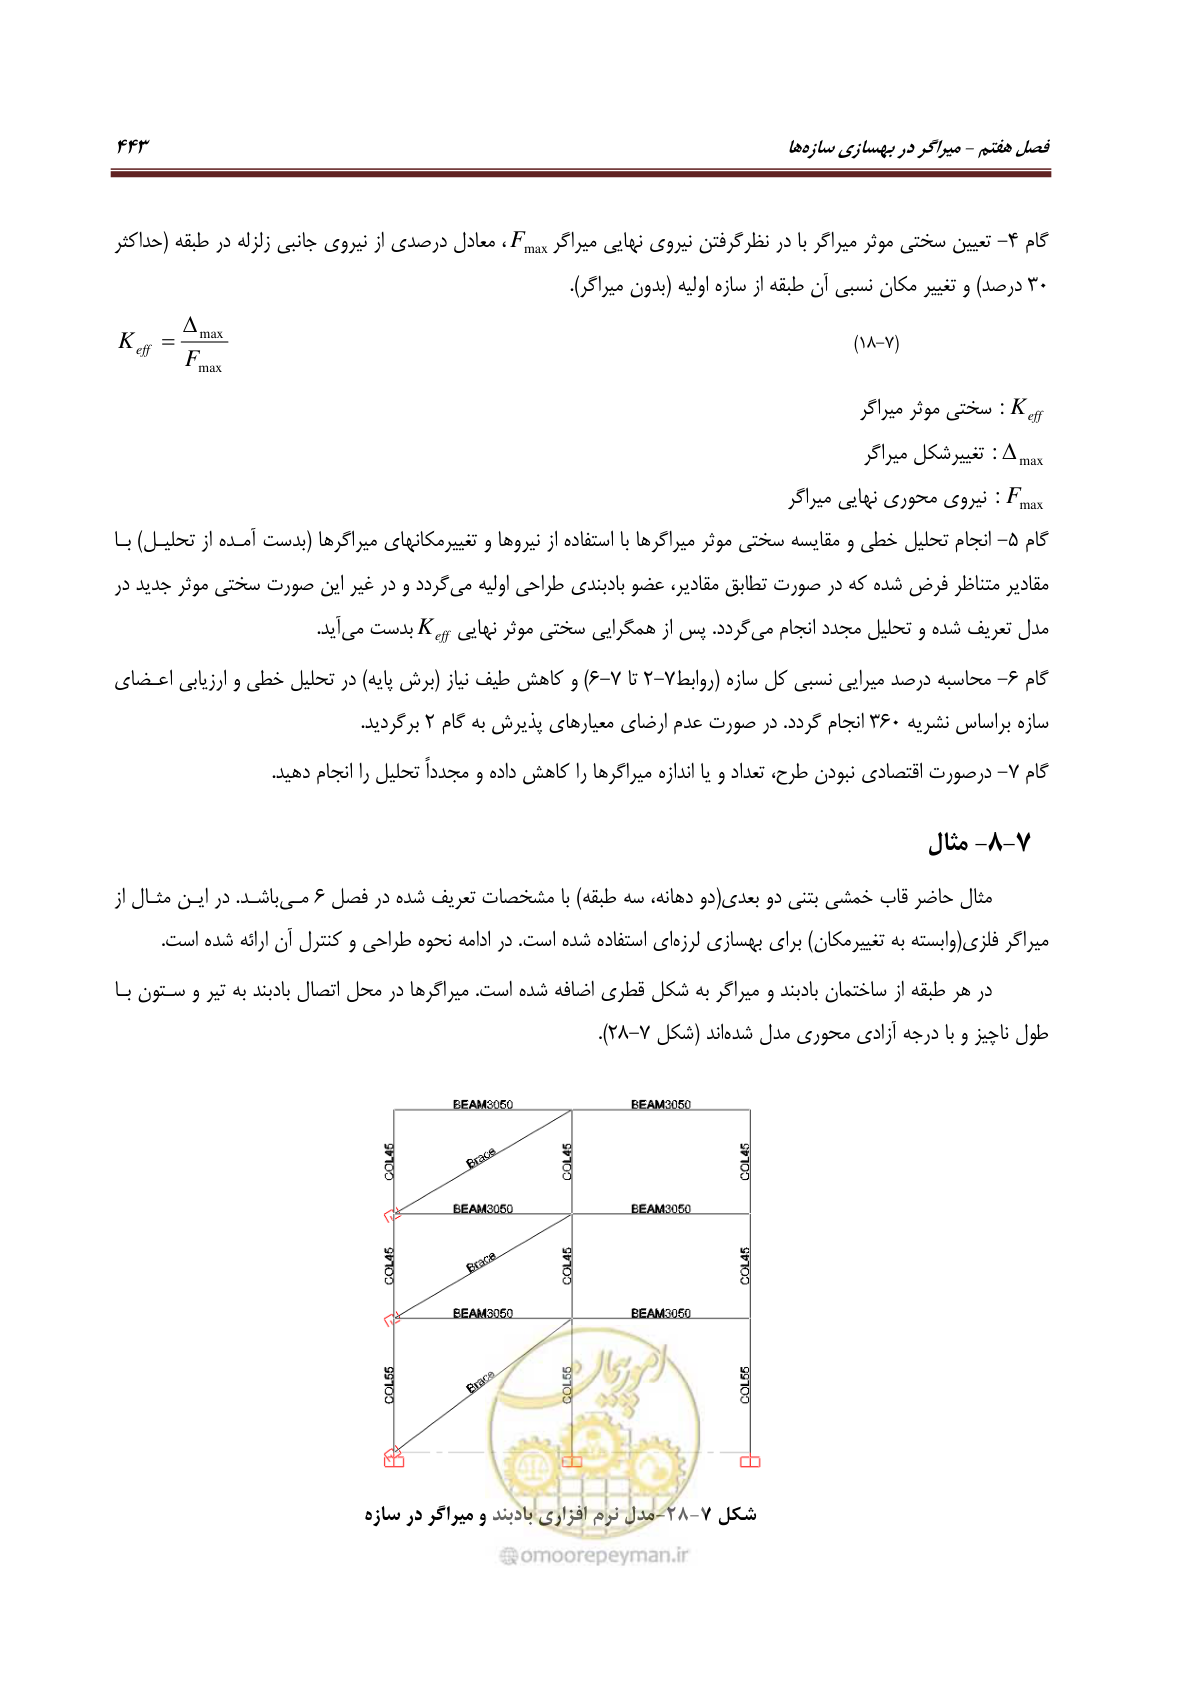 فصل هفتم – میراگر در بهسازی سازه‌ها ۴۴۳
گام ۴- تعیین سختی موثر میراگر با در نظرگرفتن نیروی نهایی میراگر F max ، معادل درصدی از نیروی جانبی زلزله در طبقه (حداکثر
۳۰ درصد) و تغییر مکان نسبی آن طبقه از سازه اولیه (بدون میراگر).
(۷-۱۸) K eff = Δ max / F max
K eff : سختی موثر میراگر
Δ max : تغییرشکل میراگر
F max : نیروی محوری نهایی میراگر
گام ۵- انجام تحلیل خطی و مقایسه سختی موثر میراگرها با استفاده از نیروها و تغییرمکانهای میراگرها (بدست آمـده از تحلیـل) بـا
مقادیر متناظر فرض شده که در صورت تطابق مقادیر، عضو بادبندی طراحی اولیه می‌گردد و در غیر این صورت سختی موثر جدید در
مدل تعریف شده و تحلیل مجدد انجام می‌گردد. پس از همگرایی سختی موثر نهایی K eff بدست می‌آید.
گام ۶- محاسبه درصد میرایی نسبی کل سازه (روابط۷-۲ تا ۷-۶) و کاهش طیف نیاز (برش پایه) در تحلیل خطی و ارزیابی اعـضای
سازه براساس نشریه ۳۶۰ انجام گردد. در صورت عدم ارضای معیارهای پذیرش به گام ۲ برگردید.
گام ۷- درصورت اقتصادی نبودن طرح، تعداد و یا اندازه میراگرها را کاهش داده و مجدداً تحلیل را انجام دهید.
۷-۸- مثال
مثال حاضر قاب خمشی بتنی دو بعدی(دو دهانه، سه طبقه) با مشخصات تعریف شده در فصل ۶ مـی‌باشـد. در ایـن مثـال از
میراگر فلزی(وابسته به تغییرمکان) برای بهسازی لرزه‌ای استفاده شده است. در ادامه نحوه طراحی و کنترل آن ارائه شده است.
در هر طبقه از ساختمان بادبند و میراگر به شکل قطری اضافه شده است. میراگرها در محل اتصال بادبند به تیر و سـتون بـا
طول ناچیز و با درجه آزادی محوری مدل شده‌اند (شکل ۷-۲۸).
BEAM3050 BEAM3050
COL45 Brace COL45 COL45
BEAM3050 BEAM3050
COL45 Brace COL45 COL45
BEAM3050 BEAM3050
COL55 Brace COL55 COL55
امور پیمان
شکل ۷-۲۸-مدل نرم افزاری بادبند و میراگر در سازه
omoorepeyman.ir